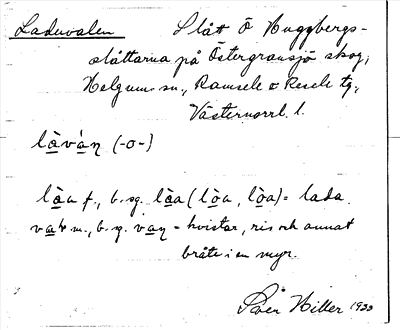 Laduvalen Slått Ö Huggbergs-
slåttarna på Östergransjö skog,
Helgums sn., Ramsele o Resele tg,
Västernorrl. l.
lὰván (-o-)
lὰa f., b. sg. lὰa (lòa, lòa) = lada.
vaɫ m., b. sg. van = kvistar, ris och annat
bråte i en myr.
Påer Hiller 1933